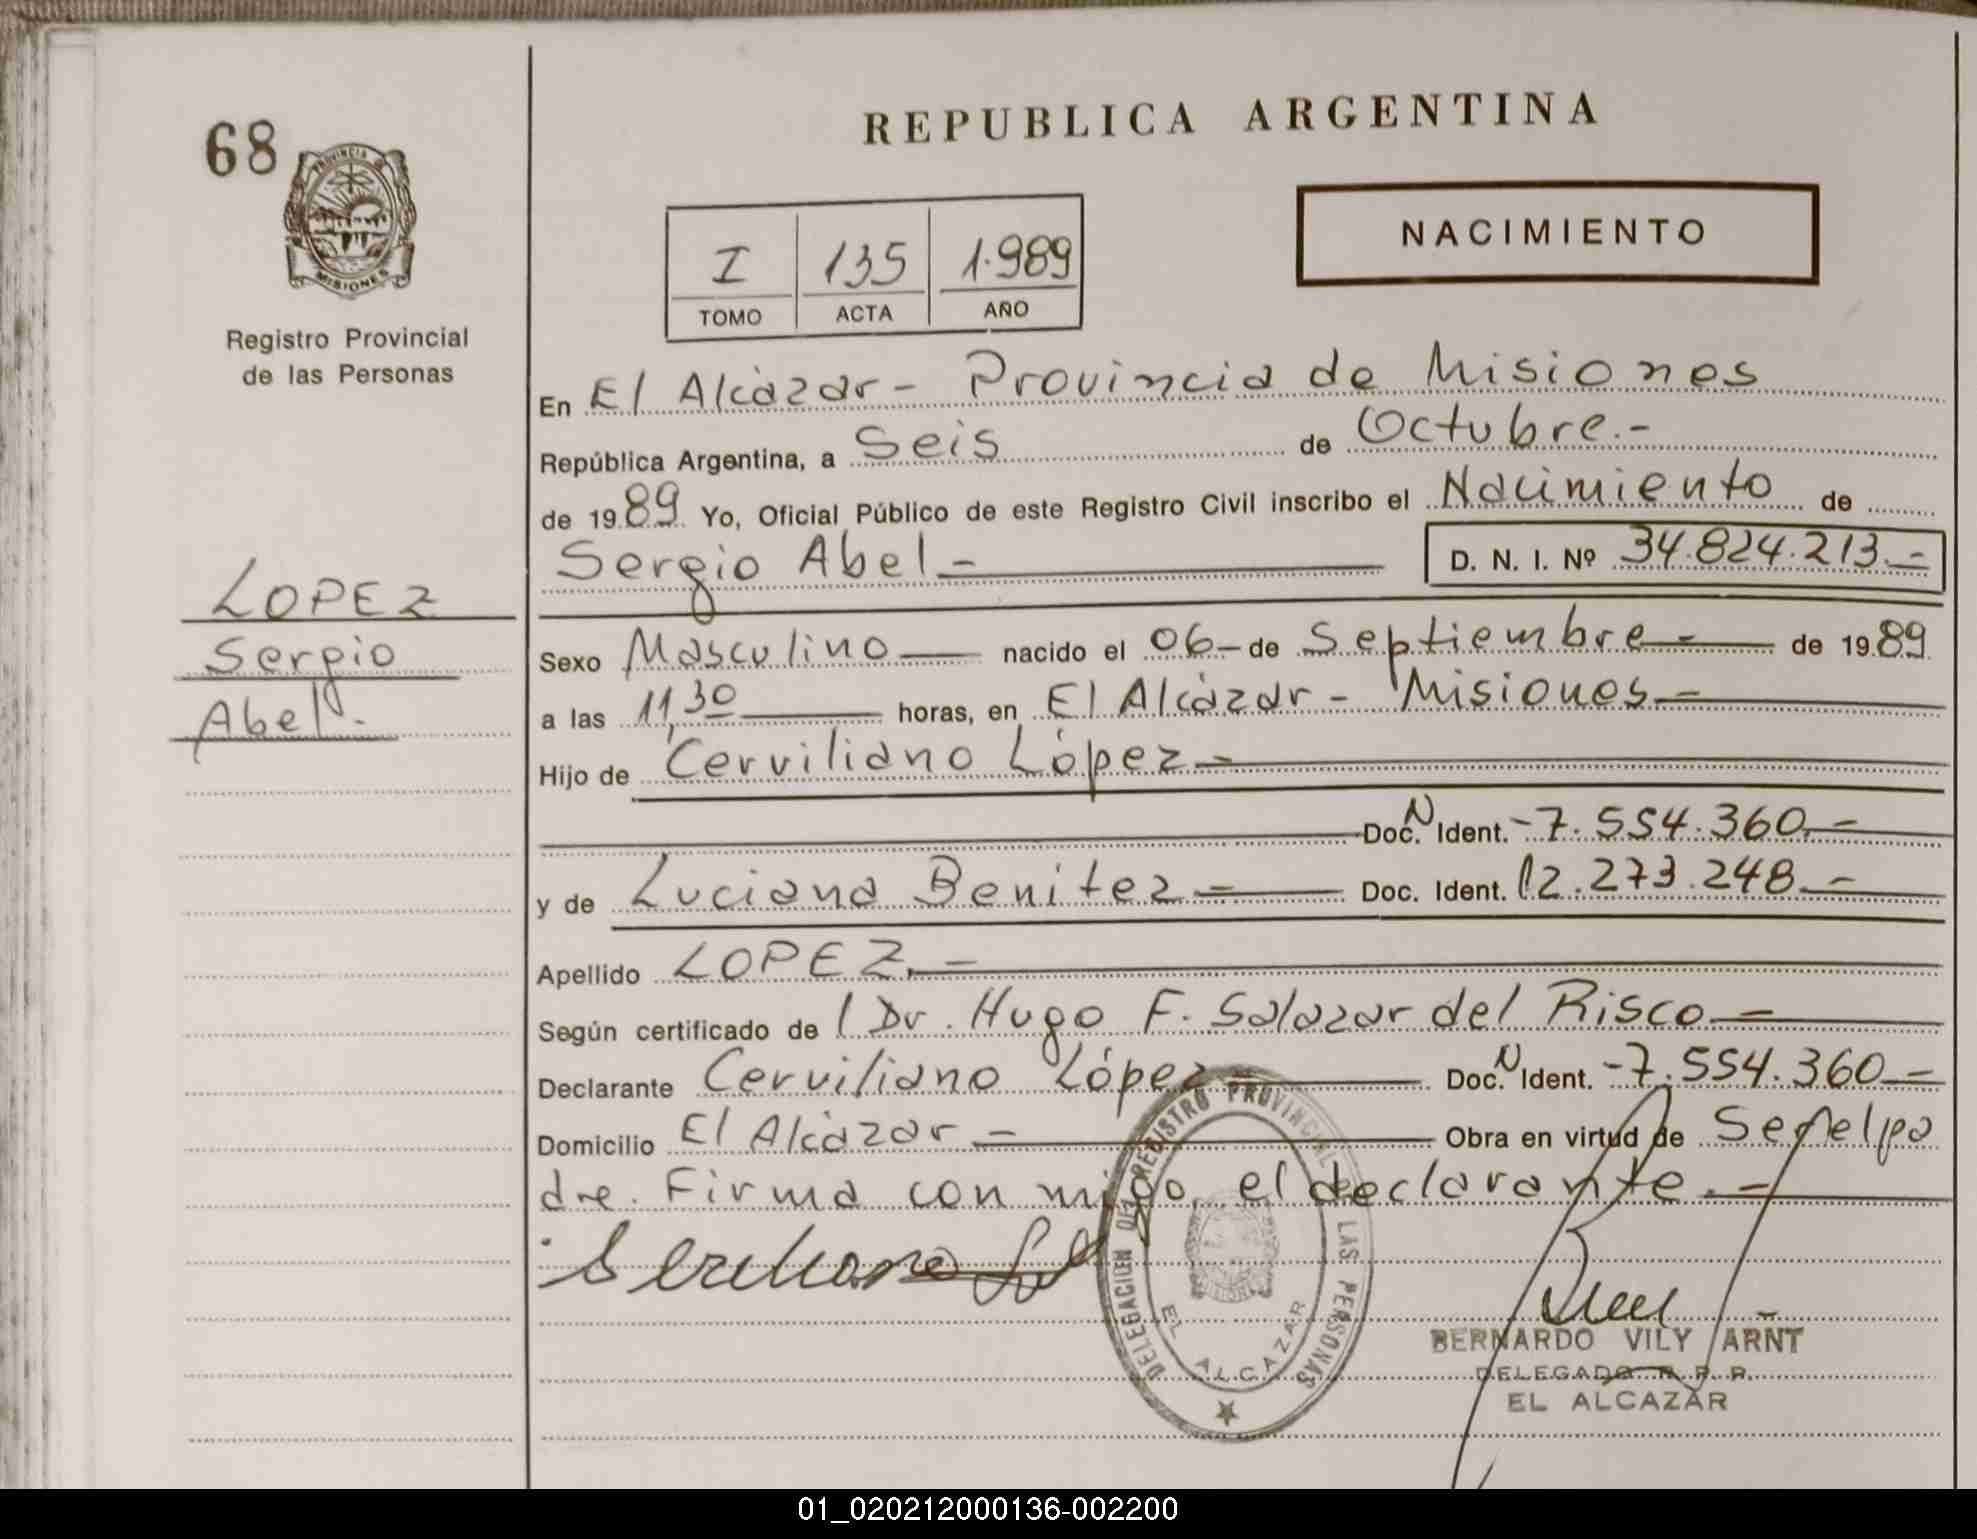 REPUBLICA ARGENTINA
68
PROVINCIA DE
MISIONES
Registro Provincial
de las Personas
I 135 1.989
TOMO ACTA AÑO
NACIMIENTO
En El Alcàzar - Provincia de Misiones
República Argentina, a Seis de Octubre.-
de 1989 Yo, Oficial Público de este Registro Civil inscribo el Nacimiento de
Sergio Abel - D. N. I. Nº 34.824.213.-
LOPEZ
Sergio
Abel.
Sexo Masculino nacido el 06- de Septiembre - de 1989
a las 11,30 horas, en El Alcàzar - Misiones -
Hijo de Cerviliano López -
Doc. N Ident. -7.554.360.-
y de Luciana Benitez - Doc. Ident. 12.273.248.-
Apellido LOPEZ.-
Según certificado de l Dr. Hugo F. Salazar del Risco -
Declarante Cerviliano López - Doc. N Ident. -7.554.360 -
Domicilio El Alcàzar - Obra en virtud de Ser el pa
dre. Firma con migo, el declarante.-
DELEGACION DEL REGISTRO PROVINCIAL DE LAS PERSONAS
EL ALCAZAR
BERNARDO VILY ARNT
DELEGADO R. P. P.
EL ALCAZAR
01_020212000136-002200